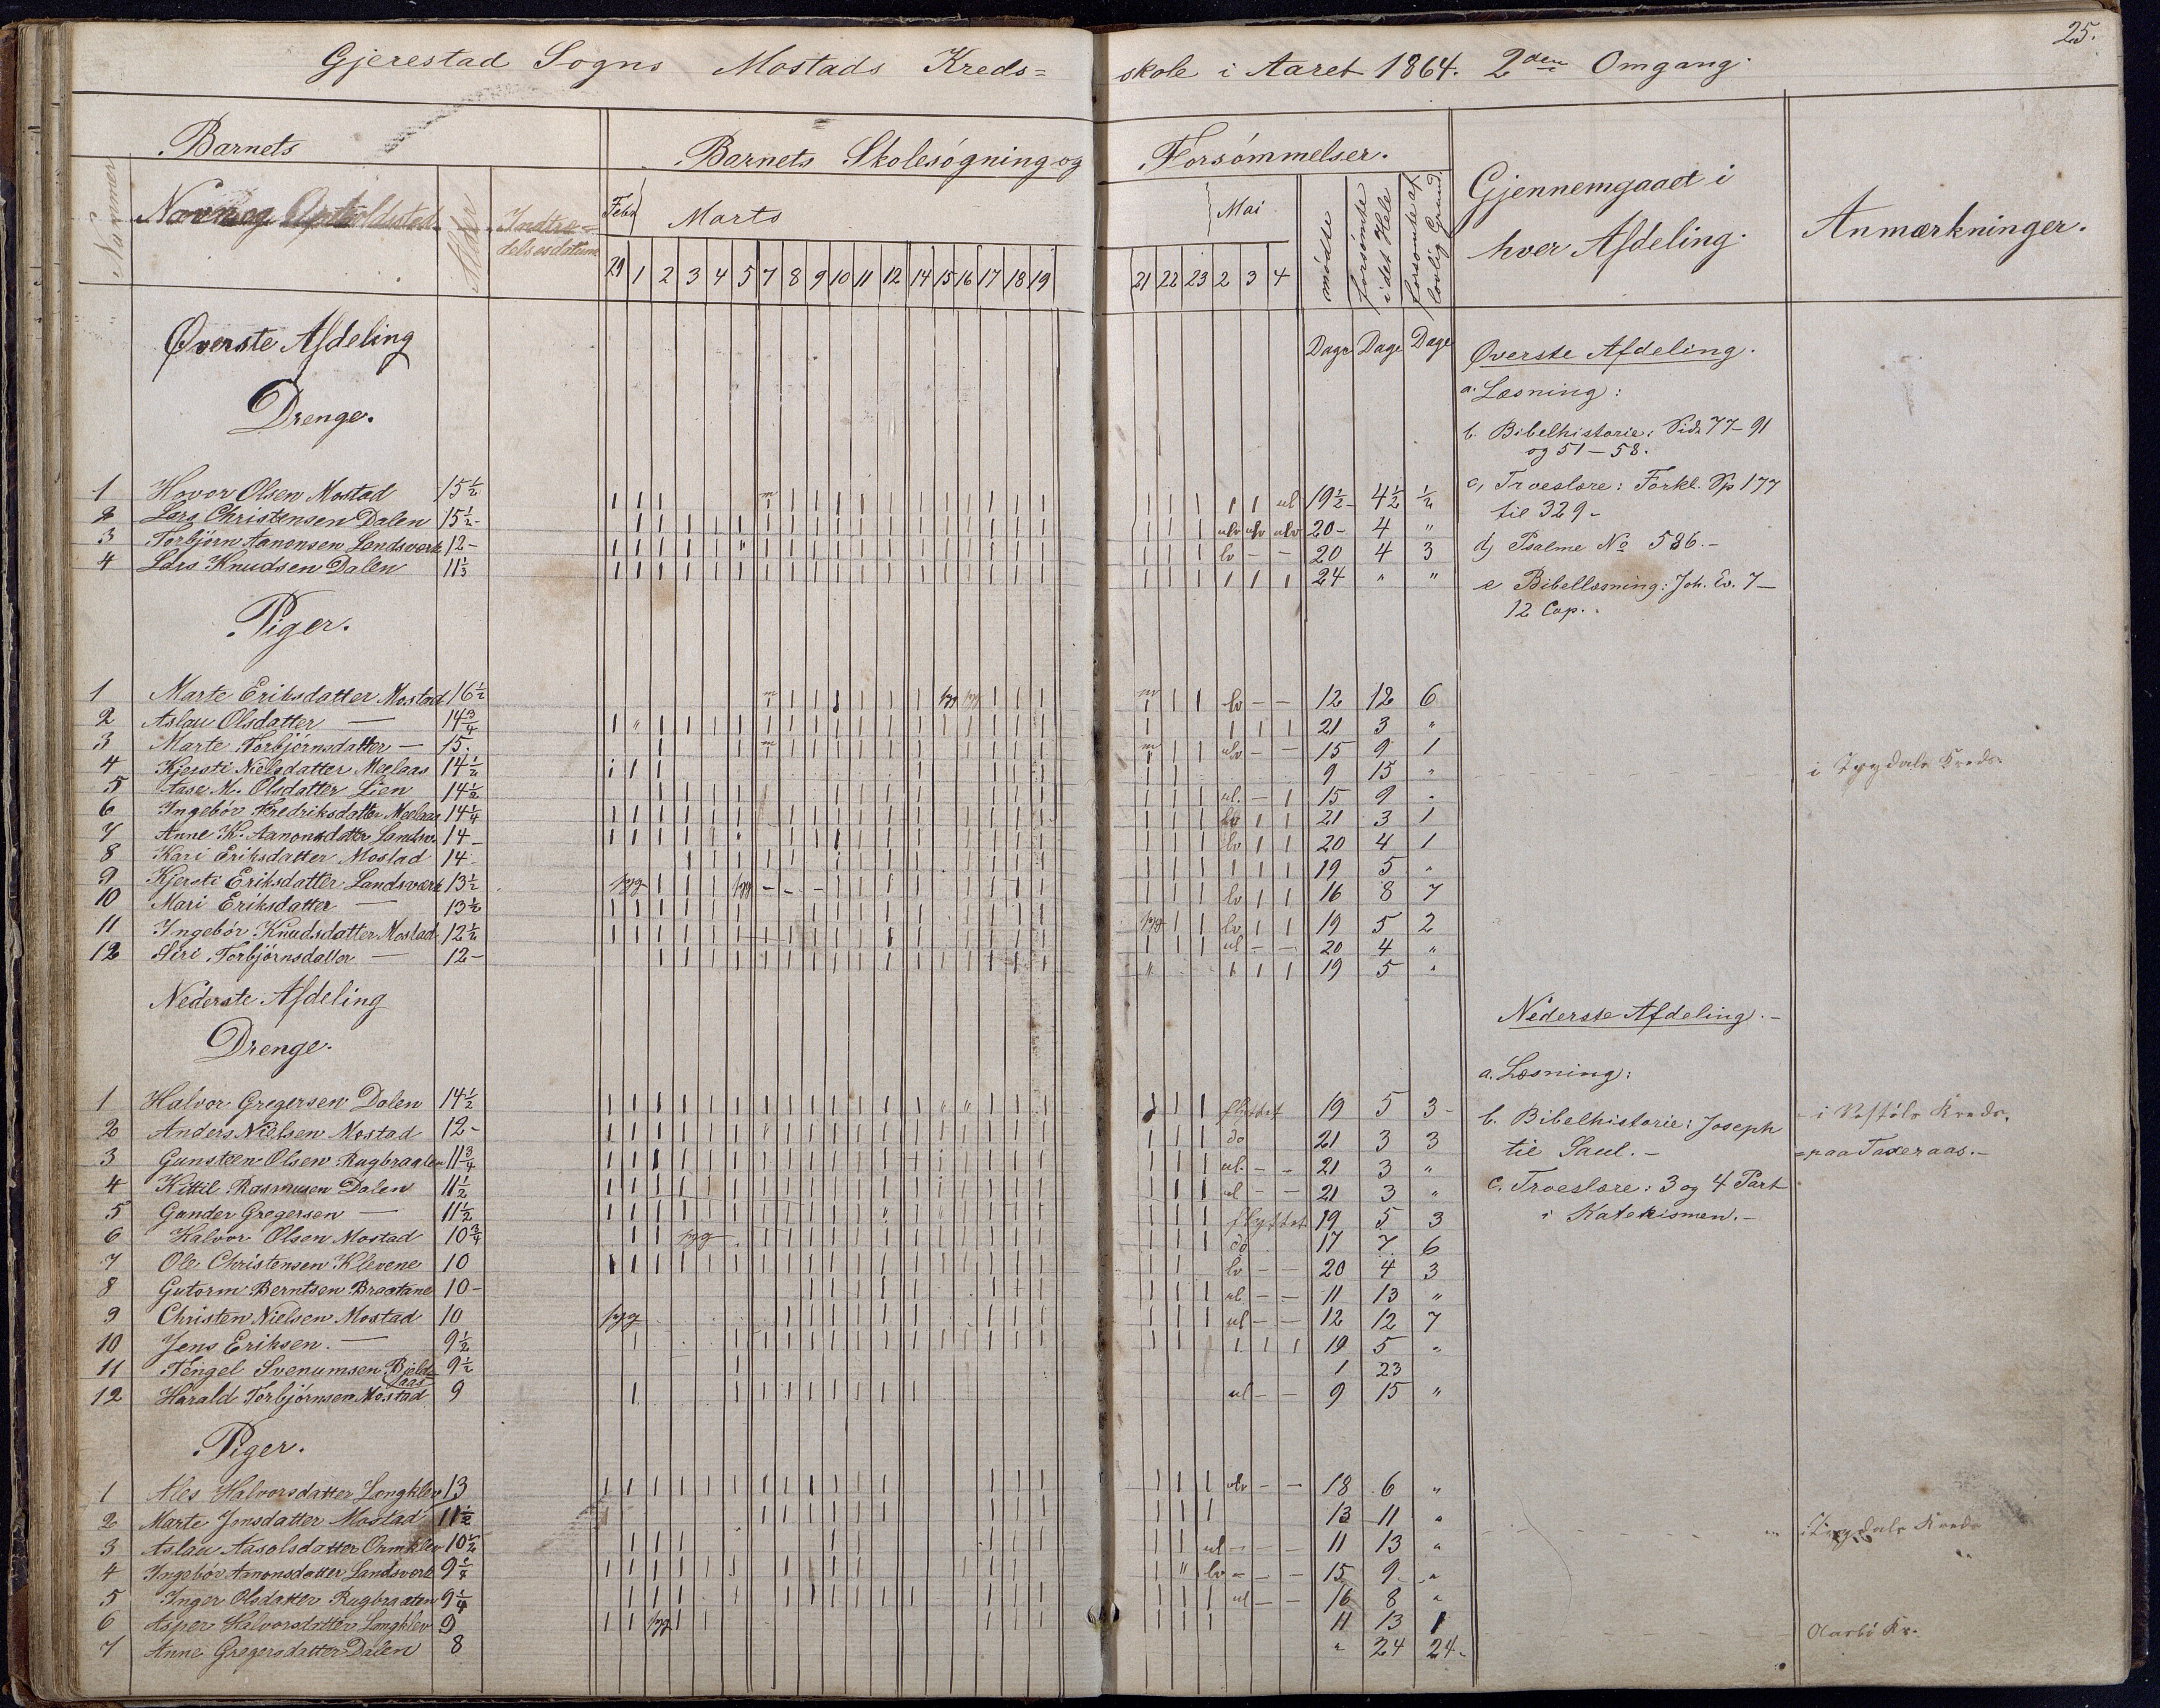 25.
Gjerestad Sogns Mostads Kreds= skole i Aaret 1864. 2den Omgang.
Barnets
Barnets Skolesøgning og Forsømmelser.
Nummer
Navn og Opholdsted
Alder
Indtrædelsesdatum
Febr Marts Mai
29 1 2 3 4 5 7 8 9 10 11 12 14 15 16 17 18 19 21 22 23 2 3 4
mødte
forsømte i det Hele
forsømte af lovlig Grund
Gjennemgaaet i hver Afdeling.
Anmærkninger.
Dage Dage Dage
Øverste Afdeling
Drenge.
1 Hovor Olsen Mostad 15½ 19½ 4½ ½
2 Lars Christensen Dalen 15½ 20 4 "
3 Torbjørn Aanonsen Landsværk 12 20 4 3
4 Lars Knudsen Dalen 11⅓ 24 " "
Piger.
1 Marte Eriksdatter Mostad 16½ 12 12 6
2 Aslau Olsdatter — 14¾ 21 3 "
3 Marte Torbjørnsdatter — 15. 15 9 1
4 Kjersti Nielsdatter Meelaas 14½ 9 15 "
5 Aase M. Olsdatter Lien 14½ 15 9 "
6 Ingebør Fredriksdatter Meelaas 14¼ 21 3 1
7 Anne K. Aanonsdatter Landsv. 14 20 4 1
8 Kari Eriksdatter Mostad 14 19 5 "
9 Kjersti Eriksdatter Landsværk 13½ 16 8 7
10 Mari Eriksdatter — 13½ 19 5 2
11 Ingebør Knudsdatter Mostad 12½ 20 4 "
12 Siri Torbjørnsdatter — 12 19 5 "
Nederste Afdeling
Drenge.
1 Halvor Gregersen Dalen 14½ flyttet 19 5 3
2 Anders Nielsen Mostad 12 do 21 3 3
3 Gunsteen Olsen Rugbraaten 11¾ 21 3 "
4 Kittil Rasmusen Dalen 11½ 21 3 "
5 Gunder Gregersen — 11½ flyttet 19 5 3
6 Halvor Olsen Mostad 10¾ do 17 7 6
7 Ole Christensen Klevene 10 20 4 3
8 Gutorm Berntsen Braatane 10 11 13 "
9 Christen Nielsen Mostad 10 12 12 7
10 Jens Eriksen — 9½ 19 5 "
11 Tengel Svenumsen Bjeldaas 9½ 1 23
12 Harald Torbjørnsen Mostad 9 9 15 "
Piger.
1 Ales Halvorsdatter Langklev 13 18 6 "
2 Marte Jensdatter Mostad 11½ 13 11 "
3 Aslau Aasolsdatter Ormklev 10½ 11 13 "
4 Ingebør Aanonsdatter Landsverk 9¼ 15 9 "
5 Inger Olsdatter Rugbraaten 9¼ 16 8 "
6 Asper Halvorsdatter Langklev 9 11 13 1
7 Anne Gregersdatter Dalen 8 " 24 24
Øverste Afdeling.
a. Læsning:
b. Bibelhistorie: Side 77–91
og 51–58.
c, Troeslære: Forkl. Sp 177
til 329
d, Psalme No 586.
e Bibellæsning: Joh. Ev. 7–
12 Cap.
i Lygdals Kreds.
Nederste Afdeling.
a. Læsning:
b. Bibelhistorie: Joseph
til Saul.
c. Troeslære: 3 og 4 Part
i Katekismen.
i Vestøls Kreds.
paa Taxeraas.
i Lygdals Kreds